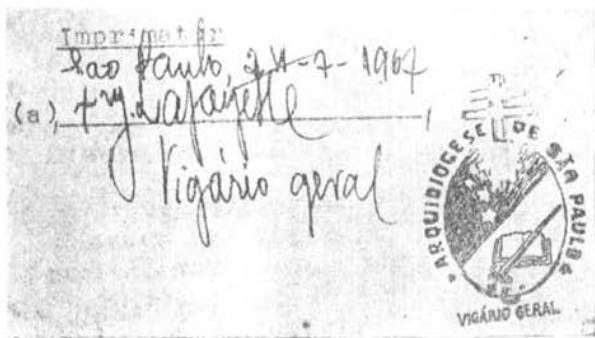 Imprimatur
São Paulo, 24-7-1967
(a) Lafayette,
Vigário geral
ARQUIDIOCESE DE SÃO PAULO
VIGÁRIO GERAL